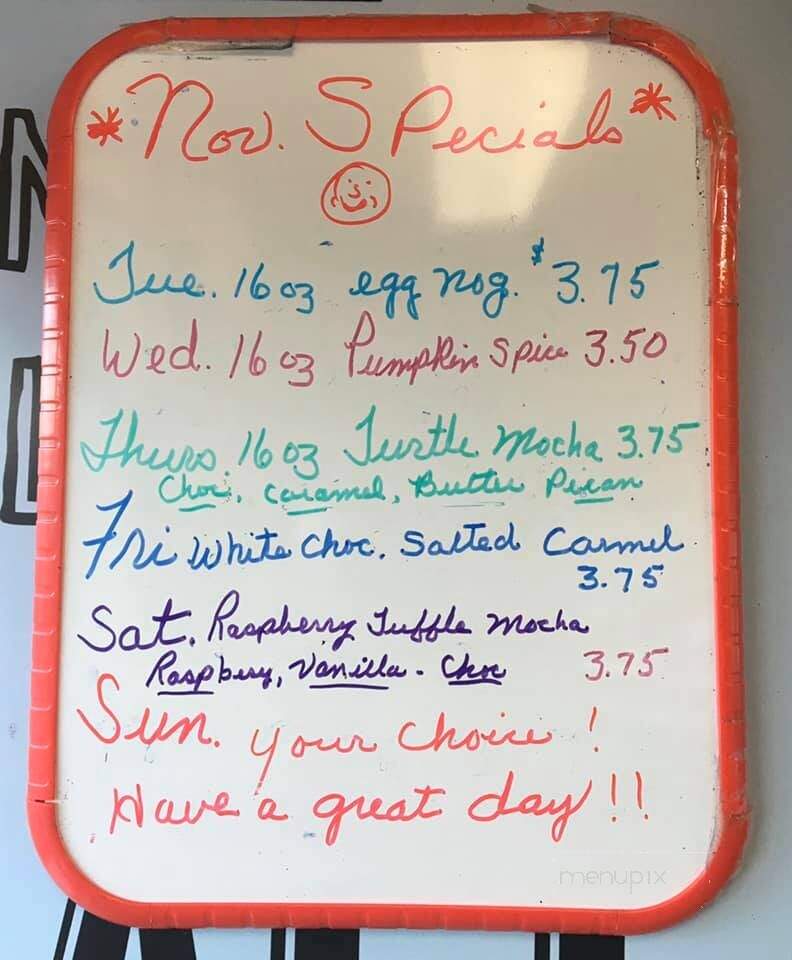 * Nov. Specials *
Tue. 16 oz egg nog. $3.75
Wed. 16 oz Pumpkin Spice 3.50
Thurs. 16 oz Turtle Mocha 3.75
Choc, caramel, Butter Pecan
Fri White Choc. Salted Carmel
3.75
Sat. Raspberry Tuffle Mocha
Raspbery, Vanilla - Choc 3.75
Sun. your choice!
Have a great day!!
menupix